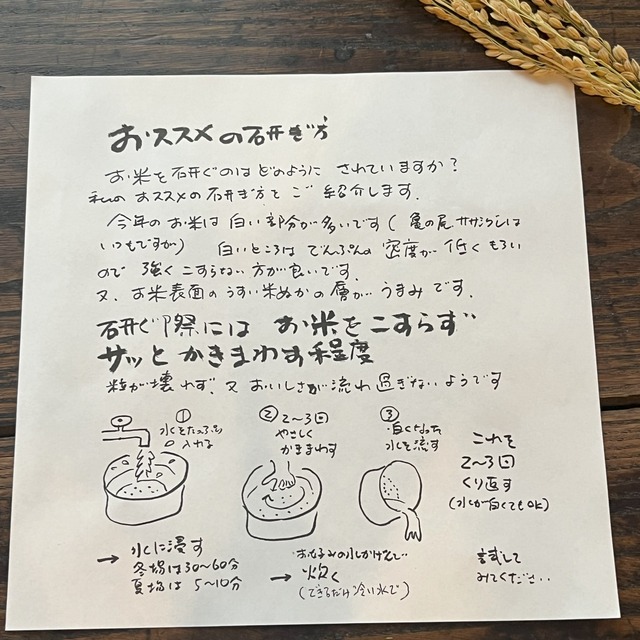 おススメの研ぎ方
お米を研ぐのはどのように されていますか?
私の おススメの研ぎ方を ご紹介します。
今年のお米は 白い部分が多いです(亀の尾、ササシグレは
いつもですが) 白いところは でんぷんの 密度が 低く もろい
ので 強く こすらない方が良いです。
又、お米表面の うすい米ぬかの層が うまみ です。
研ぐ際には お米を こすらず
サッと かきまわす程度
粒が壊れず、又 おいしさが流れ過ぎないようです
① 水をたっぷり
入れる
② 2〜3回
やさしく
かきまわす
③ 白くなった
水を流す
これを
2〜3回
くり返す
(水が白くてもOK)
→ 水に浸す
冬場は30〜60分
夏場は 5〜10分
お好みの水かげんで
→ 炊く
(できるだけ冷い水で)
試して
みてください..